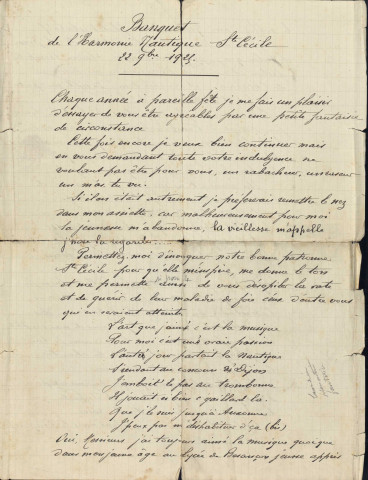 Banquet
de l'Harmonie Nautique Ste Cécile
22 9bre 1925.
Chaque année à pareille fête je me fais un plaisir
d'essayer de vous être agréables par une petite fantaisie
de circonstance
Cette fois encore je veux bien continuer mais
en vous demandant toute votre indulgence ne
voulant pas être pour vous, un rabacheur, un raseur
un mas tu vu.
Si il en était autrement je préfèrerais remettre le nez
dans mon assiette, car malheureusement pour moi
la jeunesse m'abandonne, la vieillesse m'appelle
je la regarde...
Permettez moi d'invoquer notre bonne patronne
Ste Cécile pour qu'elle m'inspire, me donne le ton
et me permette ainsi de vous dérider la rate
et de guérir de leur maladie de foie ceux d'entre vous
qui en seraient atteints
L'art que j'aime c'est la musique
Pour moi c'est une vraie passion
L'autre jour partait la Nautique
S'rendant au concours de Dijon
J'emboit' le pas au trombonne
Il jouait si bien c' gaillard là
Que j' le suis jusqu'à Auxonne
J'peux pas m' déshabituer d' ça (bis)
Oui, Messieurs j'ai toujours aimé la musique quoique
dans mon jeune âge au lycée de Besançon j'eusse appris